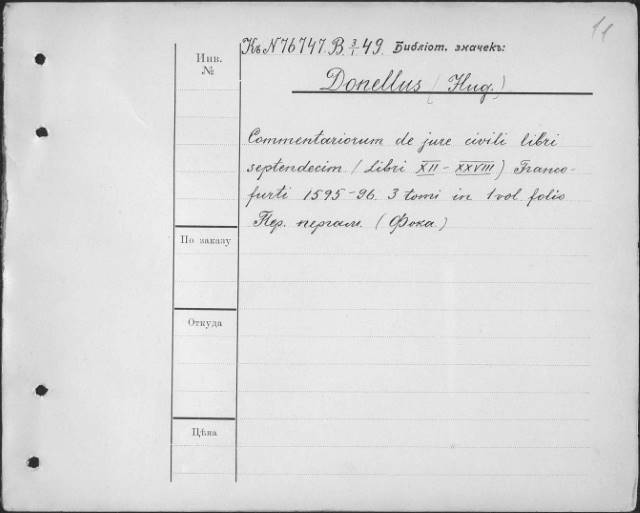 11
Къ N 76747. B. 3/1 49. Библіот. значекъ:
Инв.
№
Donellus (Hug.)
Commentariorum de jure civili libri
septendecim (Libri XII - XXVIII) Franco-
furti 1595-96. 3 tomi in 1 vol. folio
Пер. пергам. (Фока)
По заказу
Откуда
Цѣна